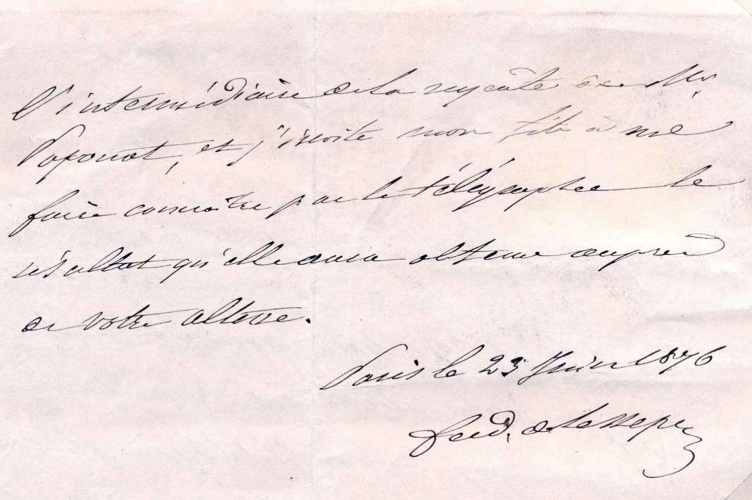 l'intermédiaire de la requête de Mr.
Paponot, et j'invite mon fils à me
faire connaître par le télégraphe le
résultat qu'elle aura obtenu auprès
de votre altesse.
Paris le 23 Juin 1876
ferd. de Lesseps